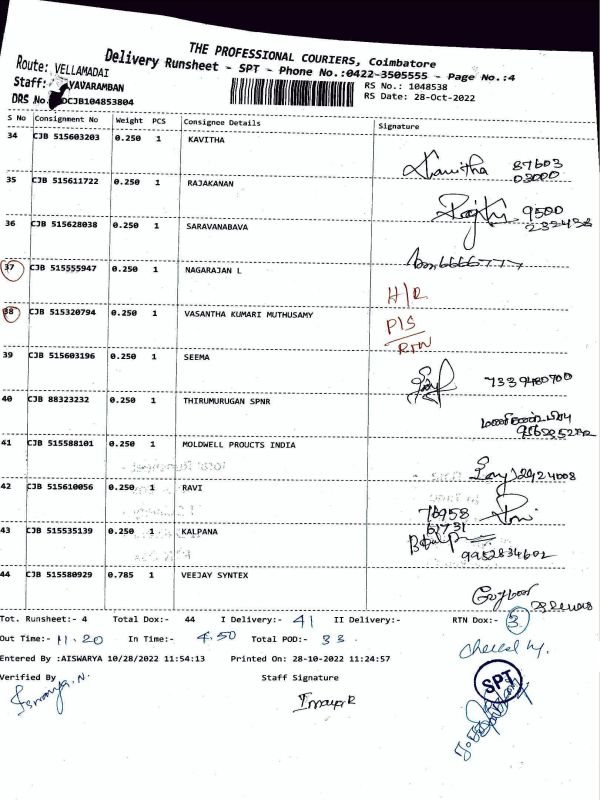 THE PROFESSIONAL COURIERS, Coimbatore
Delivery Runsheet - SPT - Phone No.:0422-3505555 - Page No.:4
Route: VELLAMADAI
Staff: YAVARAMBAN
DRS No. DCJB104853804
RS No.: 1048538
RS Date: 28-Oct-2022
S No Consignment No Weight PCS Consignee Details Signature
34 CJB 515603203 0.250 1 KAVITHA 87603
03000
35 CJB 515611722 0.250 1 RAJAKANAN 9500
36 CJB 515628038 0.250 1 SARAVANABAVA
37 CJB 515555947 0.250 1 NAGARAJAN L H/R
38 CJB 515320794 0.250 1 VASANTHA KUMARI MUTHUSAMY P/S
RTN
39 CJB 515603196 0.250 1 SEEMA 7339480700
40 CJB 88323232 0.250 1 THIRUMURUGAN SPNR
41 CJB 515588101 0.250 1 MOLDWELL PROUCTS INDIA
42 CJB 515610056 0.250 1 RAVI 76958
61731
43 CJB 515535139 0.250 1 KALPANA 9952834602
44 CJB 515580929 0.785 1 VEEJAY SYNTEX
Tot. Runsheet:- 4 Total Dox:- 44 I Delivery:- 41 II Delivery:- RTN Dox:- 3
Out Time:- 11.20 In Time:- 4.50 Total POD:- 33
Entered By :AISWARYA 10/28/2022 11:54:13 Printed On: 28-10-2022 11:24:57
Verified By Staff Signature
SPT